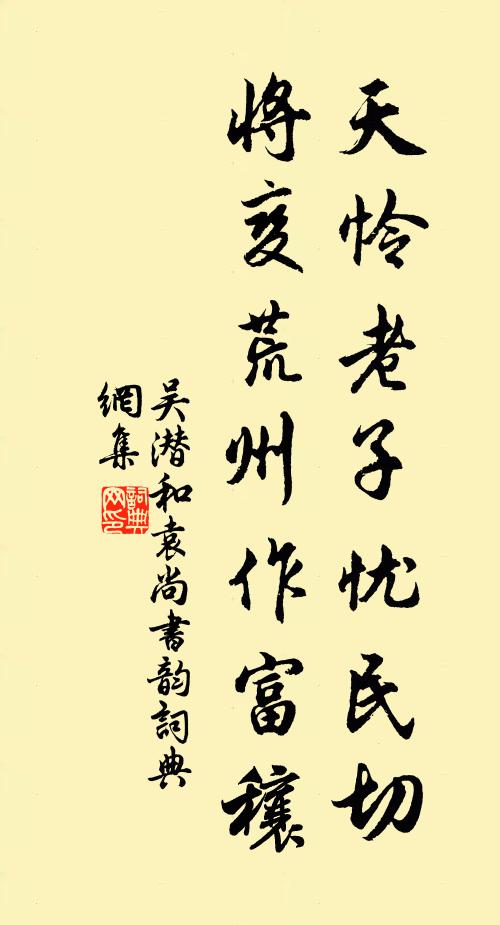 天怜老子忧民切
将变荒州作富穰
吴潜和袁尚書韵詞典
網集
詞典
网印